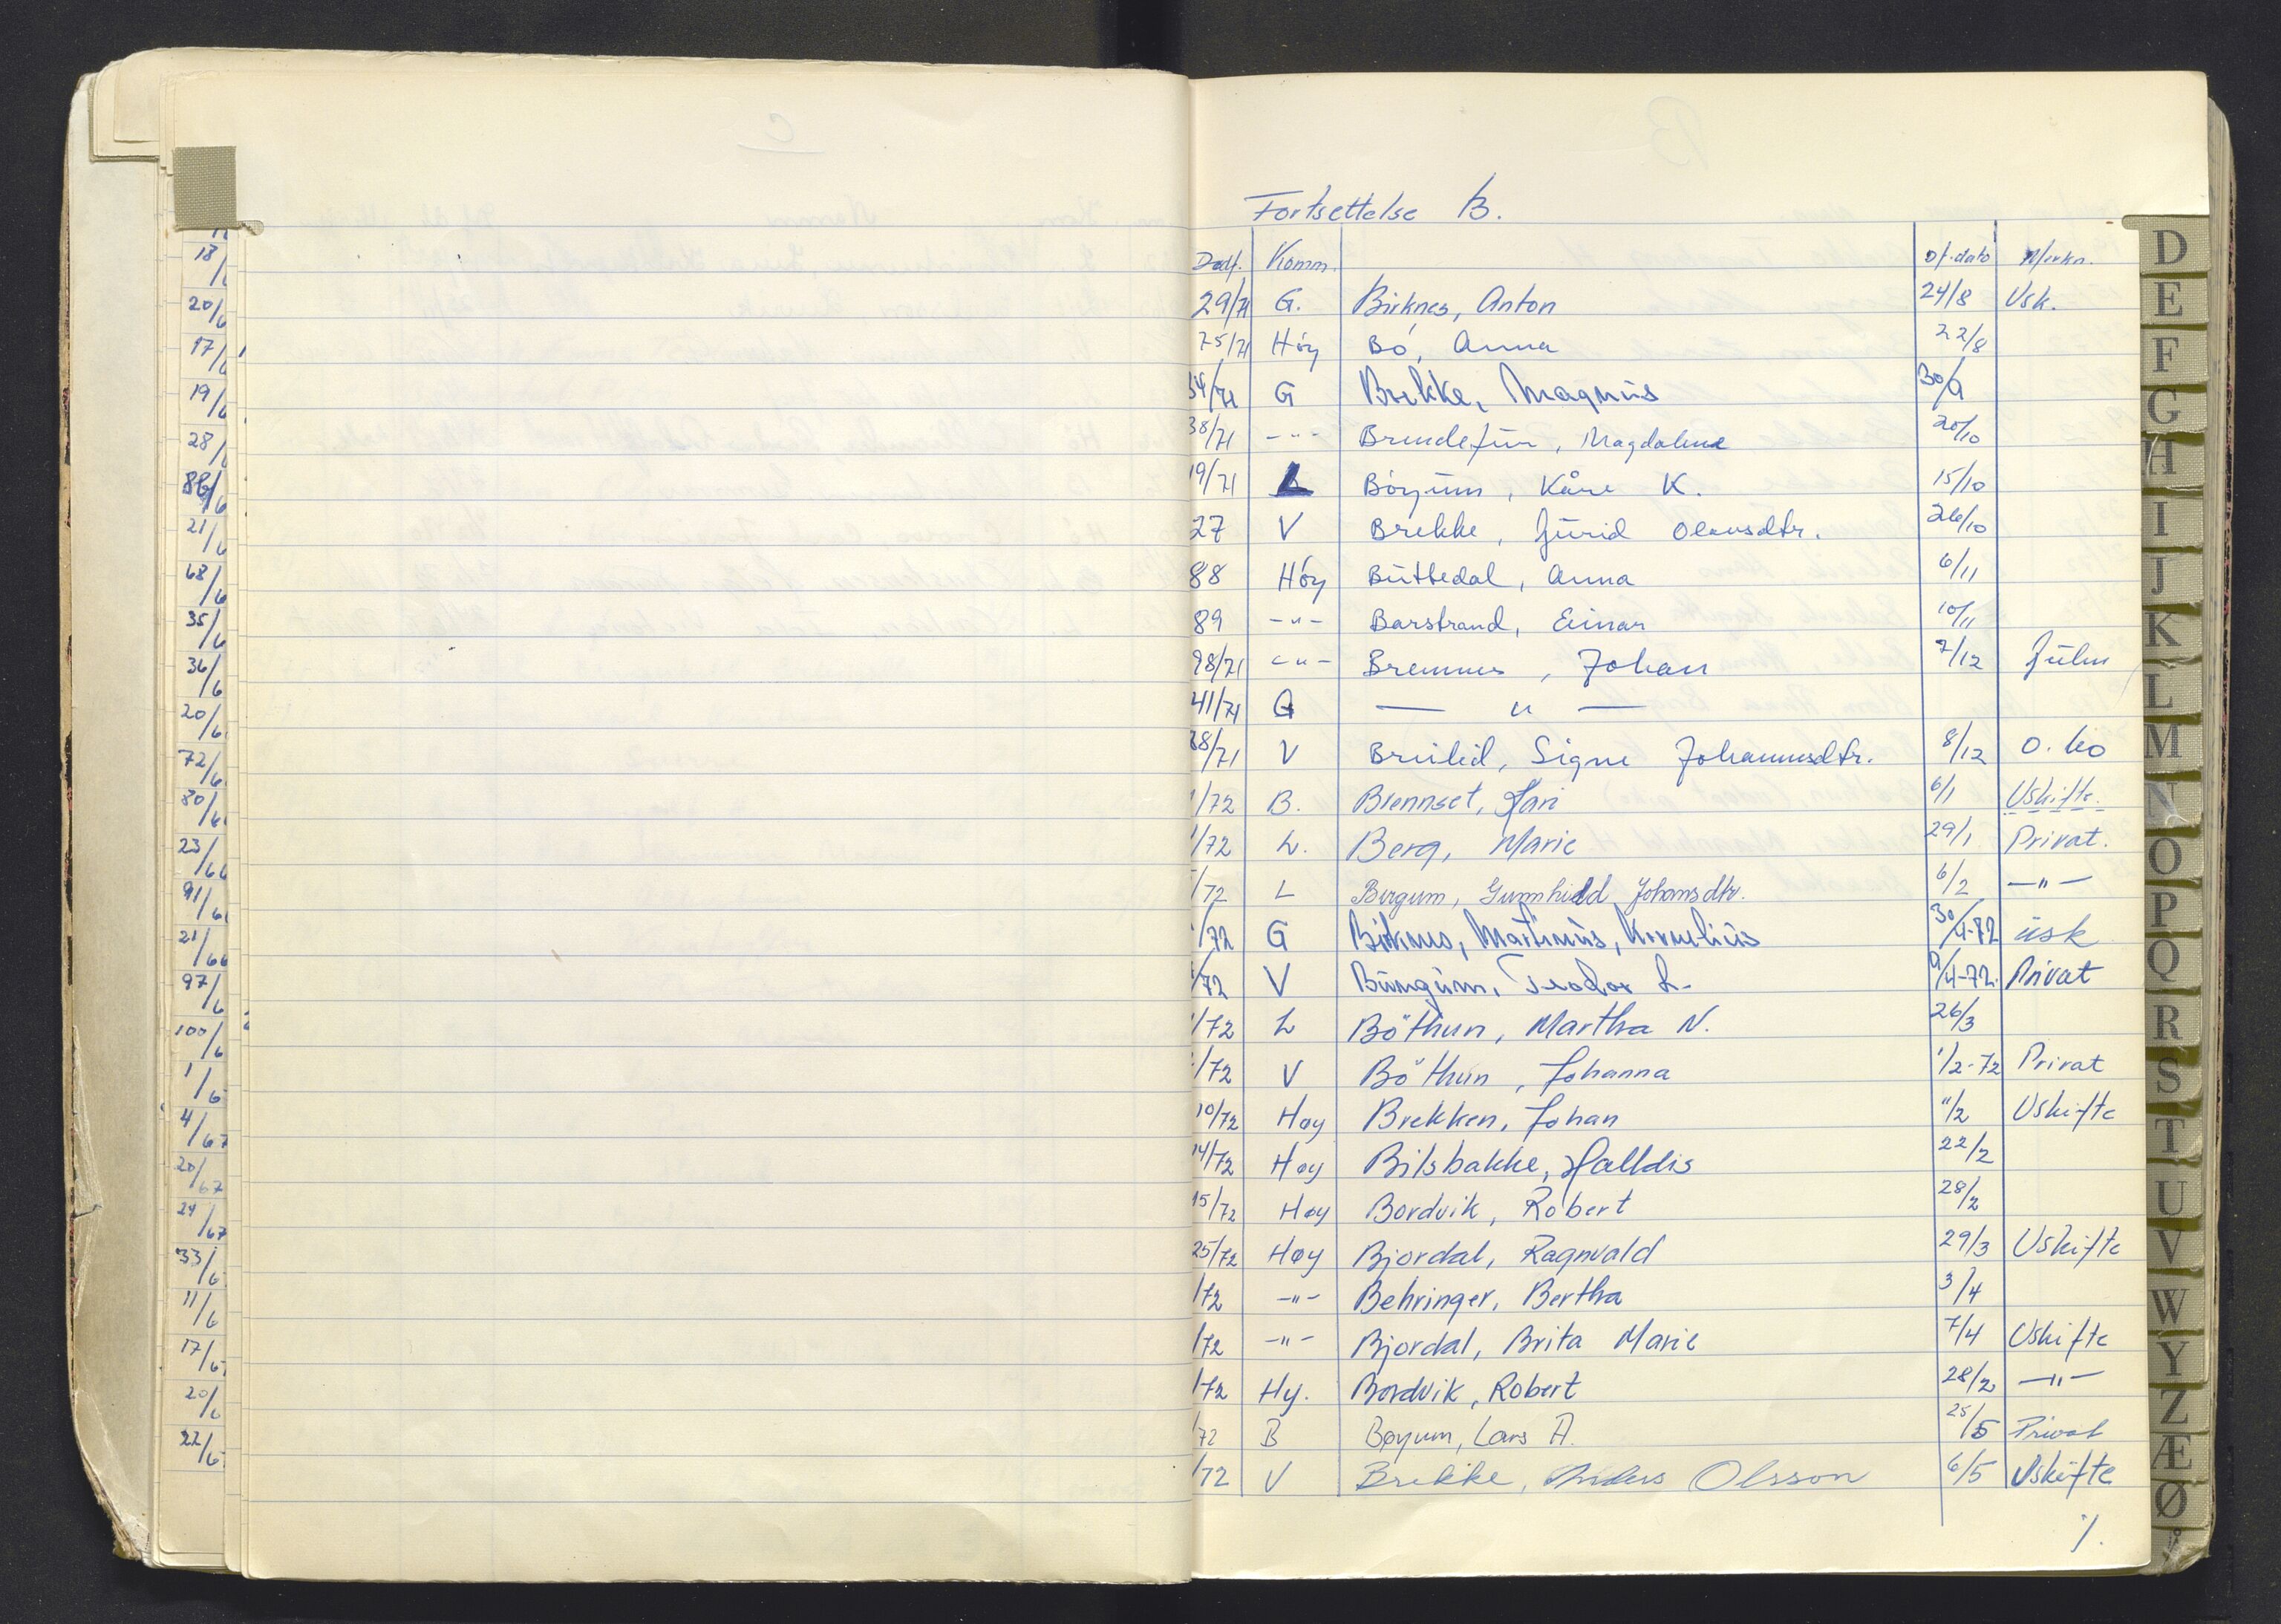 18/
20/6
17/6
19/6
28/
86/6
21/6
68/6
35/6
36/6
20/6
72/6
80/6
23/66
91/6
21/66
97/6
100/6
1/6
4/67
20/67
24/67
33/6
11/6
17/6
20/6
22/6
Fortsettelse B.
Dødf. Komm. Df.dato Merkn.
29/71 G. Birknes, Anton 24/8 Usk.
75/71 Höy Bö, Anna 22/8
34/71 G Brekke, Magnus 30/9
38/71 -"- Brendefur, Magdalena 20/10
19/71 L Böyum, Kåre K. 15/10
27 V Brekke, Jurid Olavsdtr. 26/10
88 Höy Buttedal, Anna 6/11
89 -"- Barstrand, Einar 10/11
98/71 -"- Bremnes, Johan 7/12
41/71 G — " —
38/71 V Breilid, Signe Johannesdtr. 8/12 O. ko
/72 B. Brennset, Kari 6/1 Uskifte.
/72 L. Berg, Marie 29/1 Privat.
/72 L Bergum, Gunnhild Johansdtr. 6/2 —"—
/72 G Birknes, Martinus, Kornelius 30/4-72 usk
/72 V Bungum, Teodor L. 9/4-72. Privat
/72 L Böthun, Martha N. 26/3
/72 V Böthun, Johanna 1/2-72 Privat
10/72 Høy Brekken, Johan 11/2 Uskifte
14/72 Høy Bilsbakke, Halldis 22/2
15/72 Høy Bordvik, Robert 28/2
25/72 Høy Bjordal, Ragnvald 29/3 Uskifte
/72 -"- Behringer, Bertha 3/4
/72 -"- Bjordal, Brita Marie 7/4 Uskifte
/72 Hy. Bordvik, Robert 28/2 —"—
/72 B Bøyum, Lars A. 25/5 Privat
/72 V Brekke, Anders Olsson 6/5 Uskifte
%.
D
E
F
G
H
I
J
K
L
M
N
O
P
Q
R
S
T
U
V
W
Y
Z
Æ
Ø